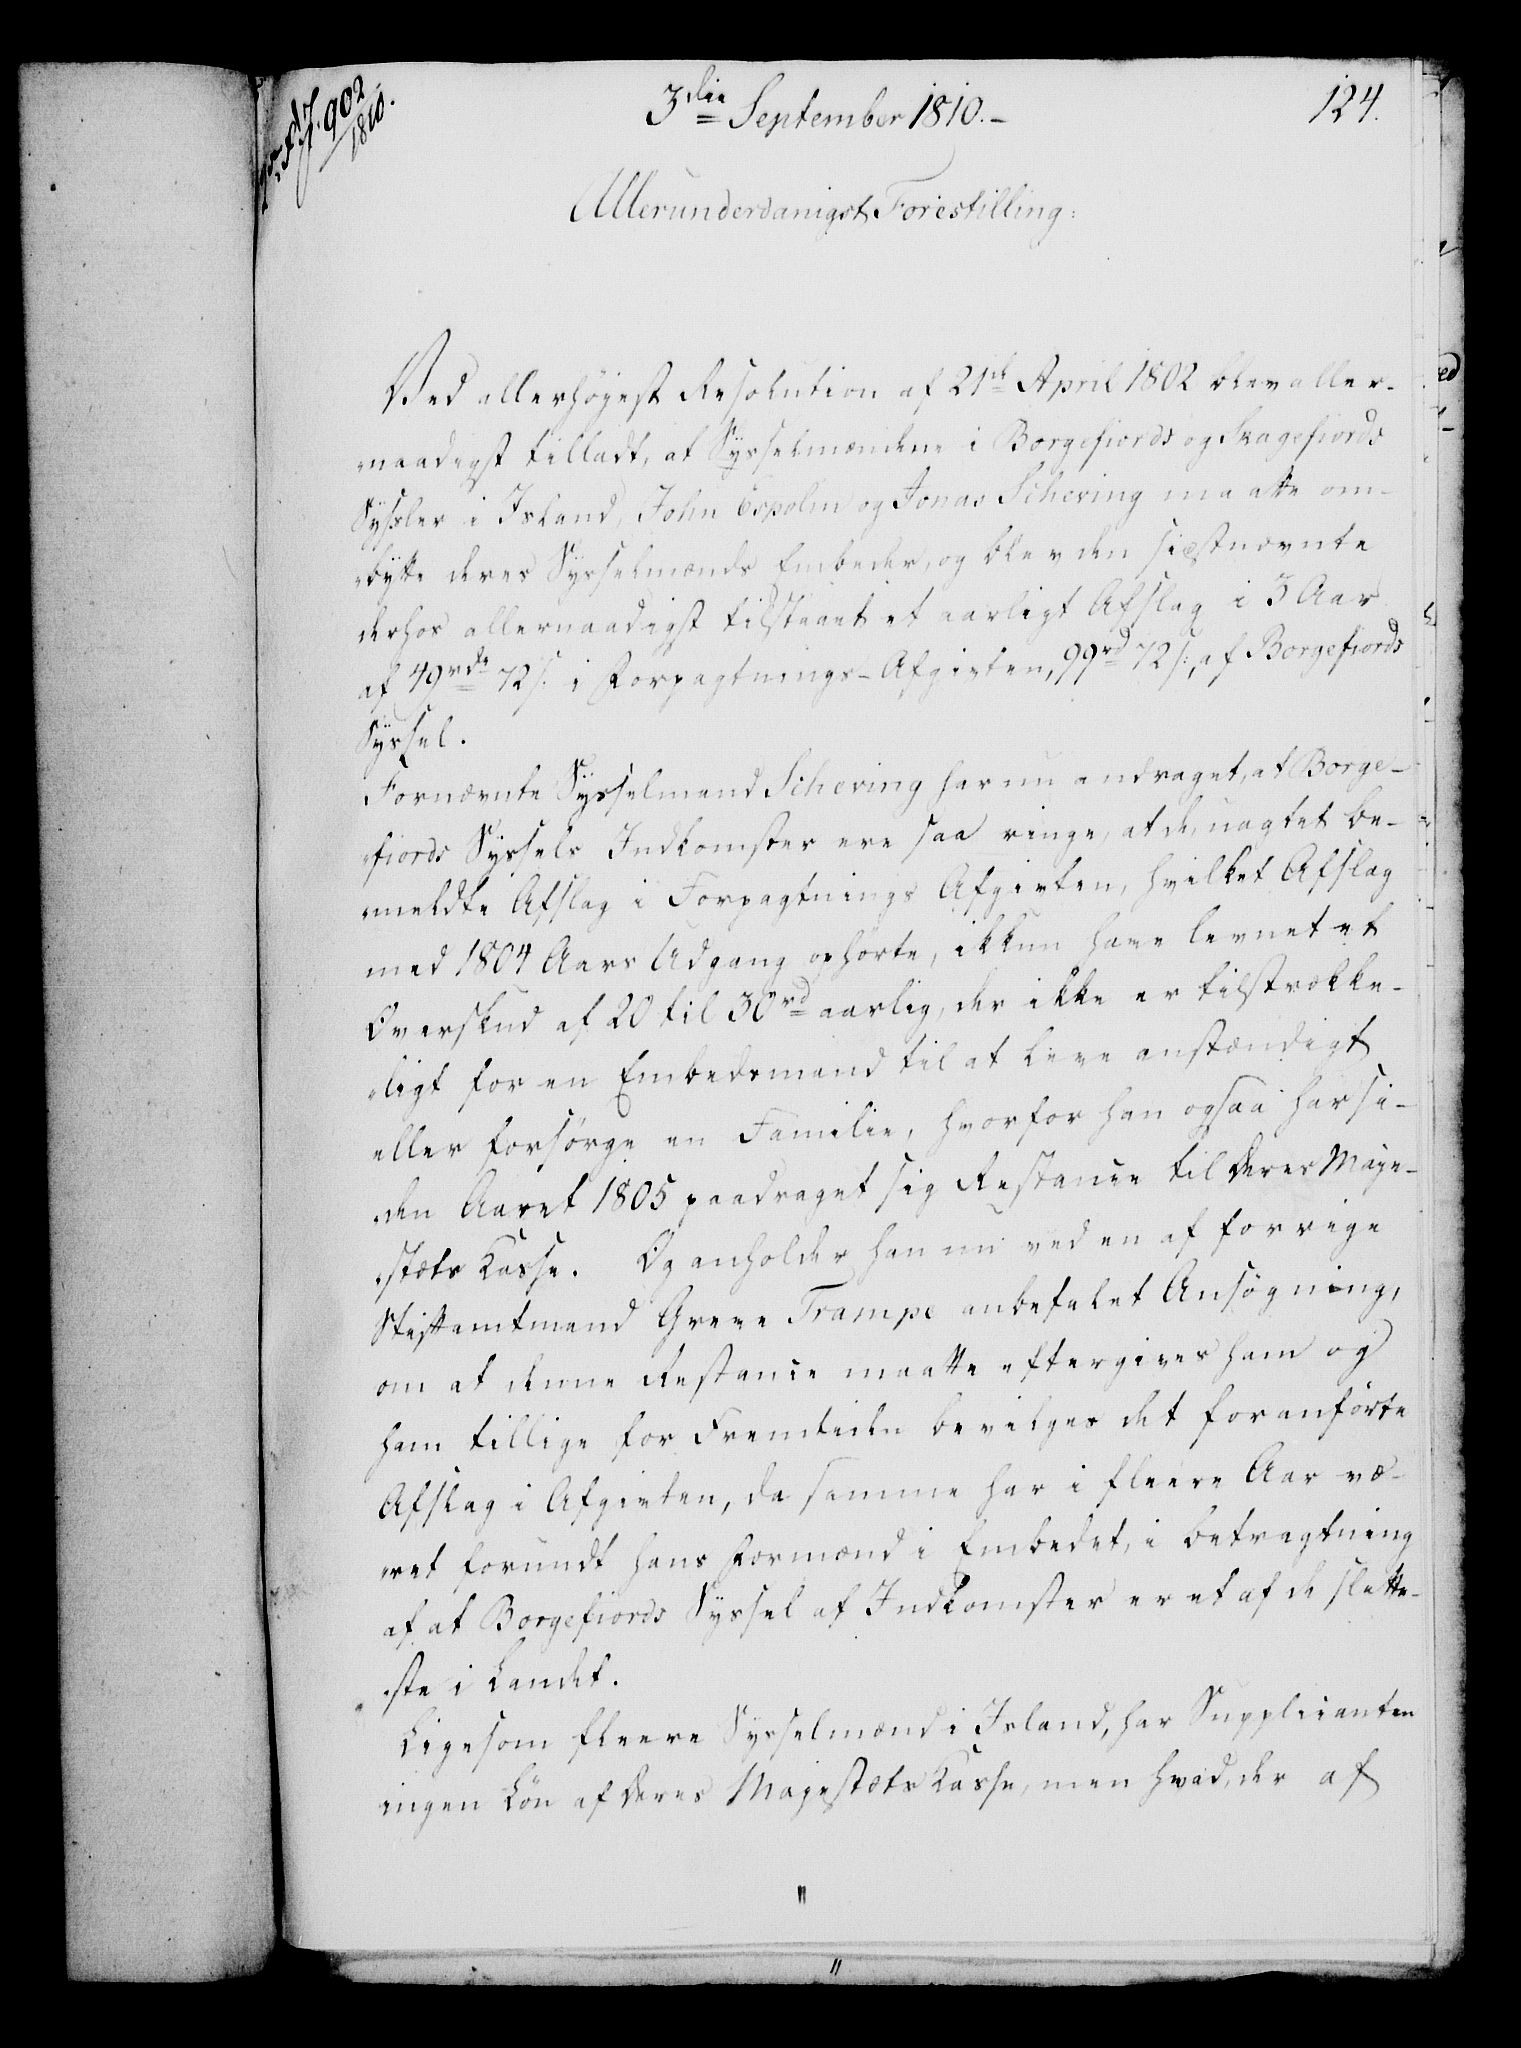 902
1810.
3die September 1810.-
124.
Allerunderdanigst Forestilling:
Ved allerhøjest Resolution af 21de April 1802 blev aller-
naadigst tilladt, at Sysselmændene i Borgefiords og Skagefiords
Sysler i Island, John Espolin og Jonas Schering maatte om-
bytte deres Sysselmands Embeder, og blev den sidstnævnte
derhos allernaadigst tilstaaet et aarligt Afslag i 3 Aar
af 49rd 72 s. i Forpagtnings-Afgivten, 99rd 72 s:, af Borgefiords
Syssel.
Fornævnte Sysselmand Schering har nu andraget, at Borge-
fiords Syssels Indkomster ere saa ringe, at de, uagtet be-
meldte Afslag i Forpagtnings Afgivten, hvilket Afslag
med 1804 Aars Udgang ophørte, ikkun have levnet et
Overskud af 20 til 30rd aarlig, der ikke er tilstrække-
ligt for en Embedsmand til at leve anstændigt
eller forsørge en Familie, hvorfor han ogsaa har si-
den Aaret 1805 paadraget sig Restance til Deres Maje-
stæts Kasse. Og anholder han nu ved en af forrige
Stiftamtmand Greve Trampe anbefalet Ansøgning,
om at denne Restance maatte eftergives ham og
ham tillige for Fremtiden bevilges det foranførte
Afslag i Afgivten, da samme har i fleere Aar væ-
ret forundt hans Formænd i Embedet, i betragtning
af at Borgefiords Syssel af Indkomster er et af de slette-
ste i Landet.
Ligesom fleere Sysselmænd i Island, har Supplicanten
ingen Løn af Deres Majestæts Kasse, men hvad, der af